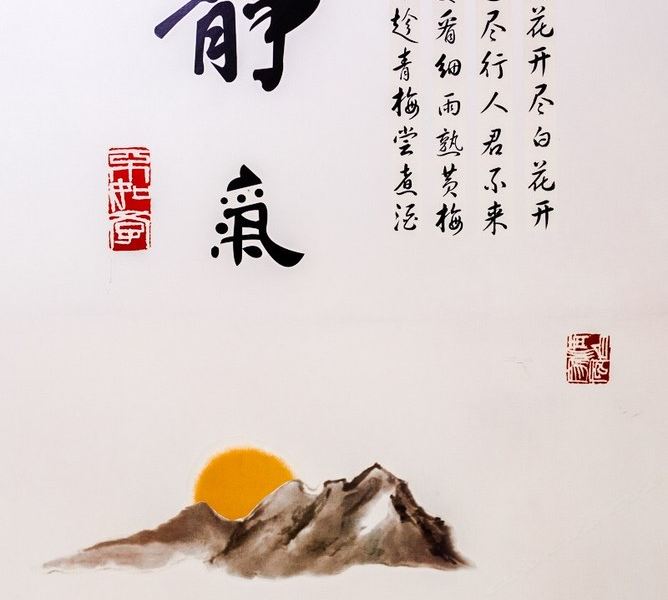 花开尽白花开
尽行人君不来
看细雨熟黄梅
趁青梅尝煮酒
静氣